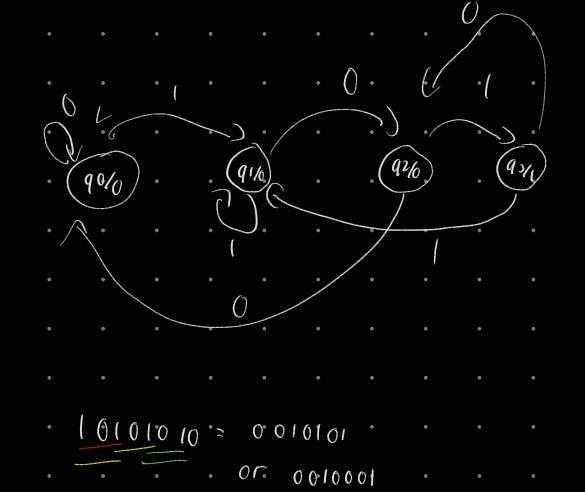 0
0 1 0 1
q0/0 q1/0 q2/0 q3/1
1 1
0
10101010 = 0010101
or 0010001